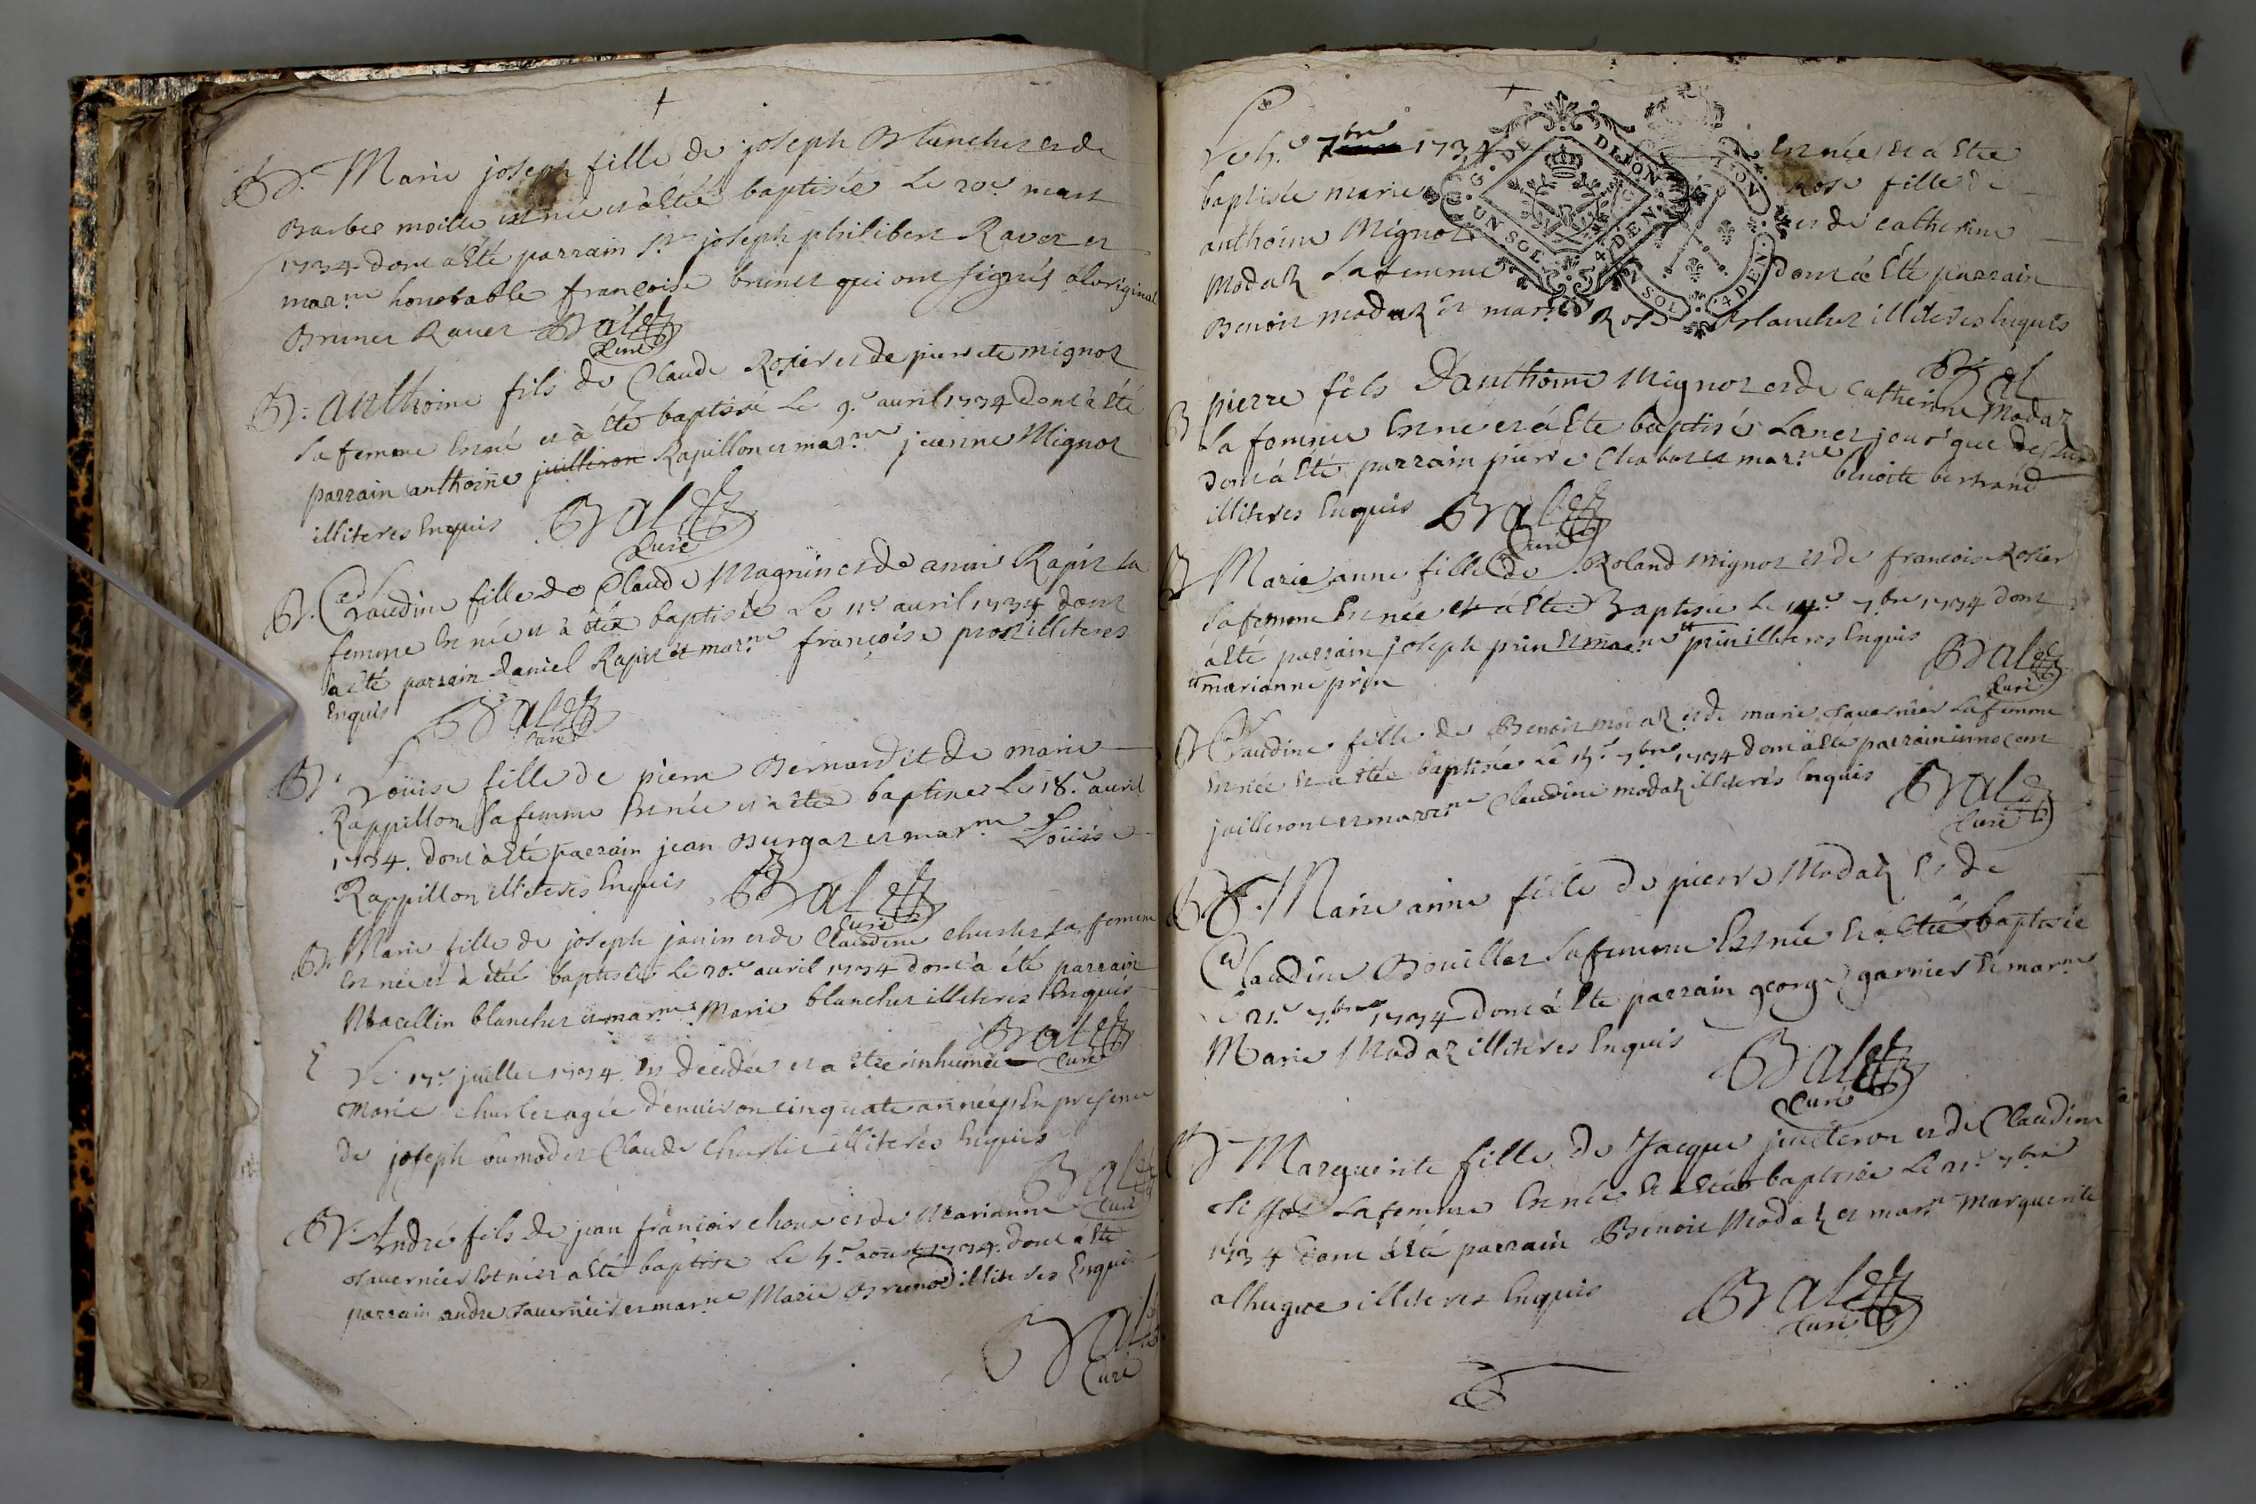 B. Marie joseph fille de joseph Blanchet et de
Barbe moille est née et à été baptisée Le 20e mars
1734 dont a été parrain sr joseph philibert Ravet et
marne honorable françoise brunet qui ont signés a Loriginal
Brunet Ravet Balet
Curé
B. anthoine fils de Claude Rosier et de pierrete mignot
sa femme est né et à été baptisé Le 9e auril 1734 dont a été
parrain anthoine juilleron Rapillon et marne jeanne Mignot
illiteres Enquis Balet
Curé
B. Claudine fille de Claude Magnin et de anne Rapit sa
femme est née et à étée baptisée Le 11e auril 1734 dont
a été parrain daniel Rapit et marne françoise prost illiteres
Enquis Balet
Curé
B. Loüise fille de pierre Bernard et de marie
Rappillon sa femme est née et a été baptisée Le 18e auril
1734. dont à été parrain jean Burgat et marne Loüise
Rappillon illiteres Enquis Balet
Curé
B. Marie fille de joseph janin et de Claudine charlet sa femme
est née et à étée baptisée Le 20e auril 1734 dont à été parrain
Macellin blanchet et marne Marie blanchet illiteres Enquis
Balet
Curé
Le 17e juillet 1734 est decedée et a étée inhumée
Marie charlet agée d'enuiron cinquate années En presence
de joseph et Claude Charlet illiteres Enquis
Balet
Curé
B. André fils de jean françois choux et de Marianne
Tavernier est né et a été baptisé Le 5e aoust 1734. dont a été
parrain andre Tavernier et marne Marie Brunod illiteres Enquis
Balet
Curé
Le 5e 7bre 1734 Est née et à étée
baptisée marie Rose fille de
anthoine Mignot et de catherine
Modaz sa femme dont à été parrain
Benoit modaz et marne Rose Blanchet illiteres Enquis
Balet
G. DE DIJON
UN SOL 4 DEN.
UN SOL 4 DEN.
B pierre fils D'anthoine Mignot et de Catherine Modaz
sa femme est né et à été baptisé Lan et jour que dessus
dont à été parrain pierre Chabot et marne benoite bertrand
illiteres Enquis Balet
Curé
B Marie anne fille de Roland mignot et de francoise Rosier
sa femme est née et à étée Baptisée Le 14e 7bre 1734 dont
à été parrain joseph prin et marne prin illiteres Enquis
marianne prin
Balet
Curé
B Claudine fille de Benoit modaz et de marie Tavernier sa femme
Est née et à étée baptisée Le 15e 7bre 1734 dont à été parrain innocent
juilleron et marne Claudine modaz illiterés Enquis
Balet
Curé
B. Marie anne fille de pierre Modaz et de
Claudine Bouillet sa femme Est née et à étée baptisée
Le 21e 7bre 1734 dont à été parrain george garnier et marne
Marie Modaz illiteres Enquis
Balet
Curé
B Marguerite fille de Jacque juilleron et de Claudine
chiffot sa femme Est née et à étée baptisée Le 21e 7bre
1734 dont à été parrain Benoit Modaz et marne Marguerite
alhugue illiteres Enquis
Balet
Curé